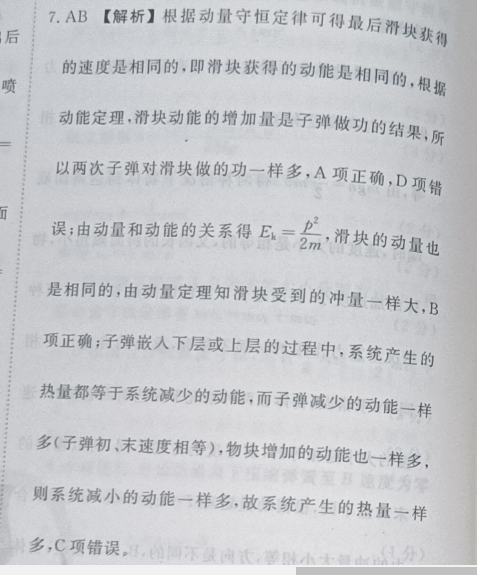 后
喷
=
面
7. AB 【解析】根据动量守恒定律可得最后滑块获得
的速度是相同的,即滑块获得的动能是相同的,根据
动能定理,滑块动能的增加量是子弹做功的结果,所
以两次子弹对滑块做的功一样多,A 项正确,D 项错
误;由动量和动能的关系得 Eₖ = p²/2m,滑块的动量也
是相同的,由动量定理知滑块受到的冲量一样大,B
项正确;子弹嵌入下层或上层的过程中,系统产生的
热量都等于系统减少的动能,而子弹减少的动能一样
多(子弹初、末速度相等),物块增加的动能也一样多,
则系统减小的动能一样多,故系统产生的热量一样
多,C 项错误。